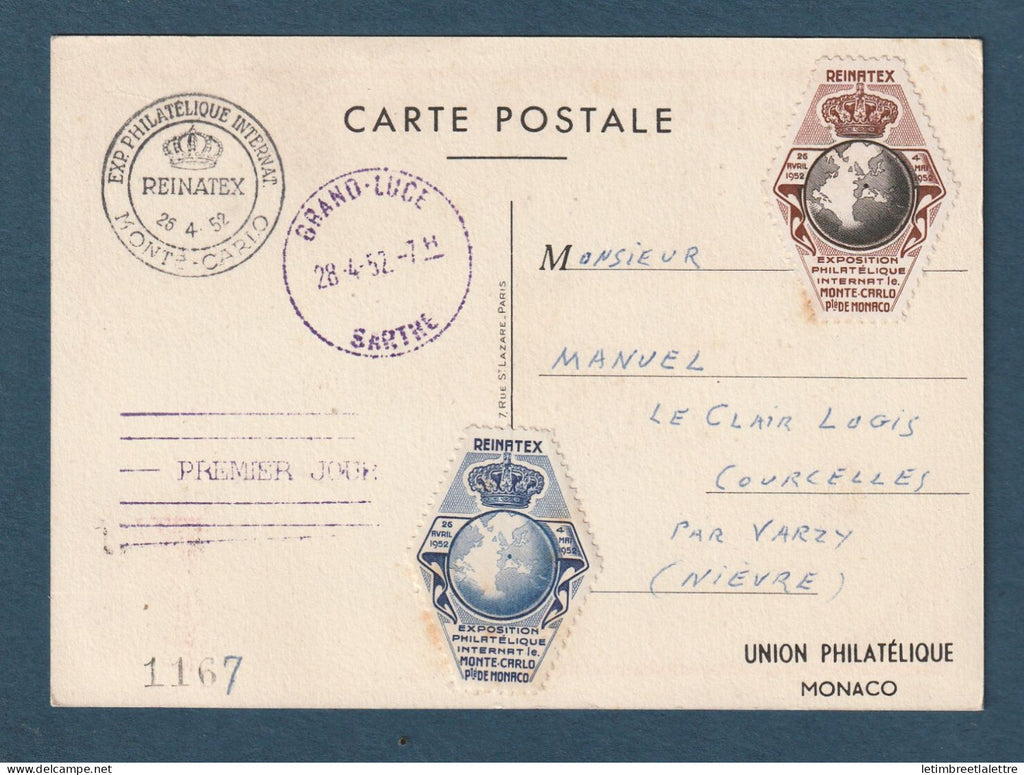 CARTE POSTALE
EXP. PHILATÉLIQUE INTERNAT.
REINATEX
26 4. 52
MONTE-CARLO
GRAND-LUCE
28-4-52.-7H
SARTHE
REINATEX
26
AVRIL
1952
4
MAI
1952
EXPOSITION
PHILATÉLIQUE
INTERNATle.
MONTE-CARLO
PtéDE MONACO
MONSIEUR
MANUEL
LE CLAIR LOGIS
COURCELLES
PAR VARZY
(NIÈVRE)
7, RUE ST LAZARE, PARIS
PREMIER JOUR
REINATEX
26
AVRIL
1952
4
MAI
1952
EXPOSITION
PHILATÉLIQUE
INTERNATle.
MONTE-CARLO
PtéDE MONACO
1167
UNION PHILATÉLIQUE
MONACO
delcampe.net
letimbreetlalettre